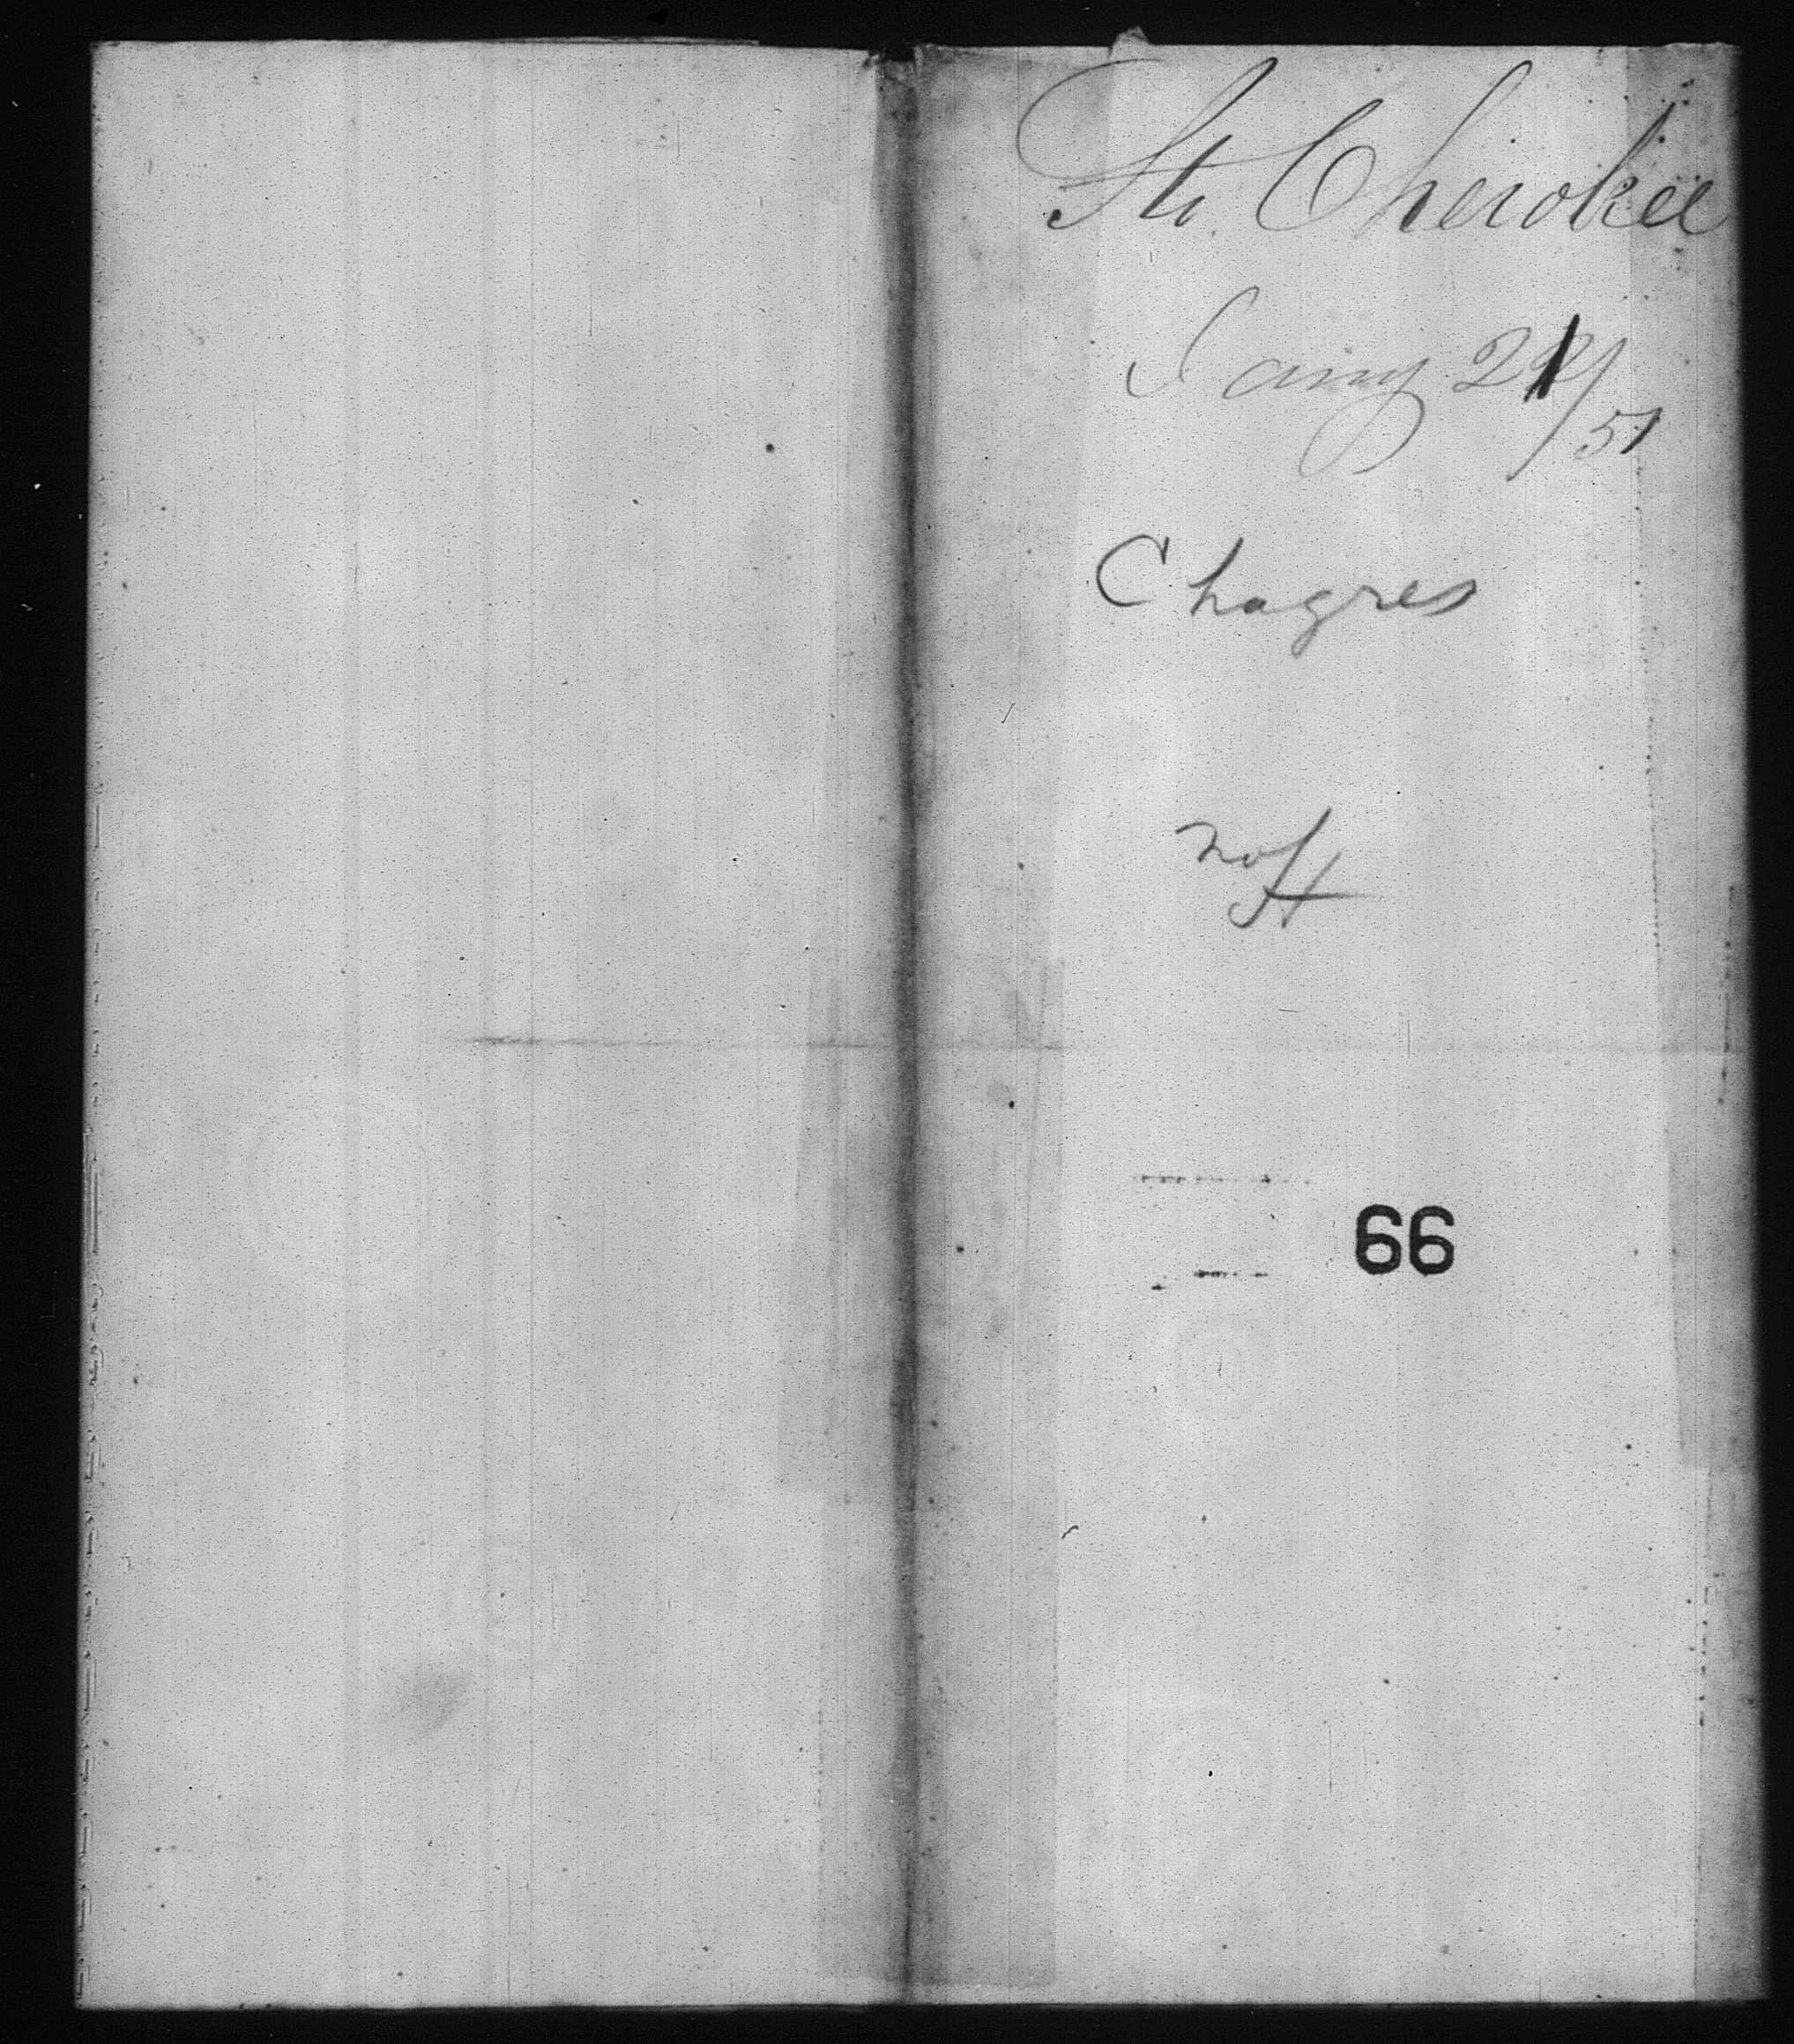 Str. Cherokee
Jany 21/51
Chagres
66